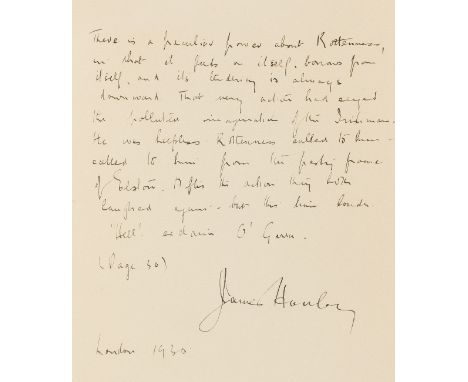 There is a peculiar power about Rottenness,
in that it feeds on itself, borrows from
itself, and its tendency is always
downward. That very action had seized
the polluted imagination of the Irishman.
He was helpless. Rottenness called to him -
called to him from the pasty frame
of Elston. After the action they both
laughed again - but this time louder.
'Hell'. exclaim O' Garra.
(Page 30)
James Hanley
London 1930